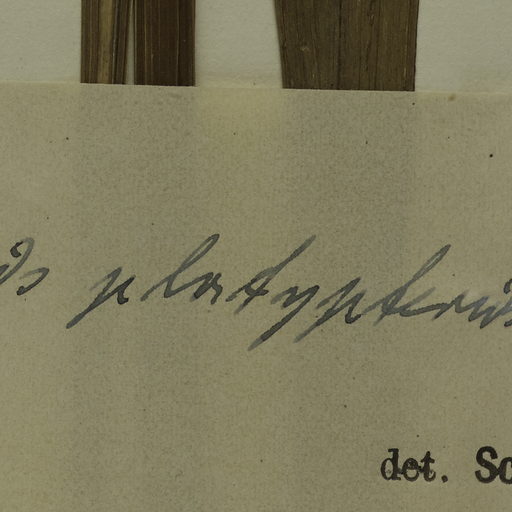 is platypteris
det. Sc